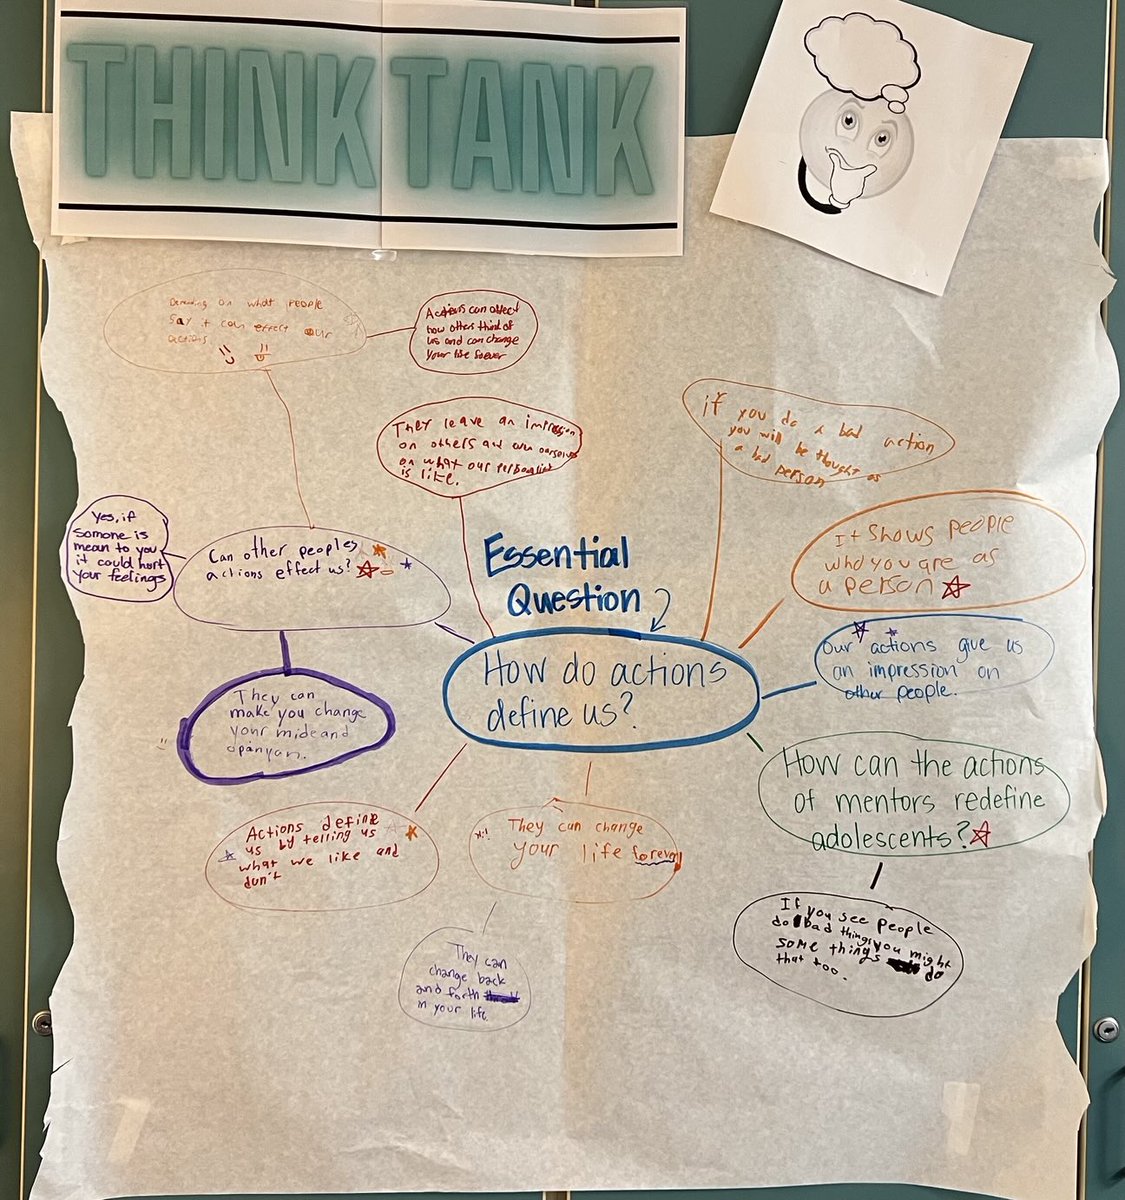 THINK TANK
Depending on what people
say it can effect our
actions
Actions can affect
how others think of
us and can change
your life forever
They leave an impression
on others and even ourselves
on what our
is like.
if you do a bad action
you will be thought as
a bad person
Yes, if
somone is
mean to you
it could hurt
your feelings
Can other peoples
actions effect us?
Essential
Question
It shows people
who you are as
a person
How do actions
define us?
Our actions give us
an impression on
other people.
They can
make you change
your mide and
opanyan.
How can the actions
of mentors redefine
adolescents?
Actions define
us by telling us
what we like and
don't
They can change
your life forever
If you see people
do bad things, you might
some things do
that too.
They can
change back
and forth
in your life